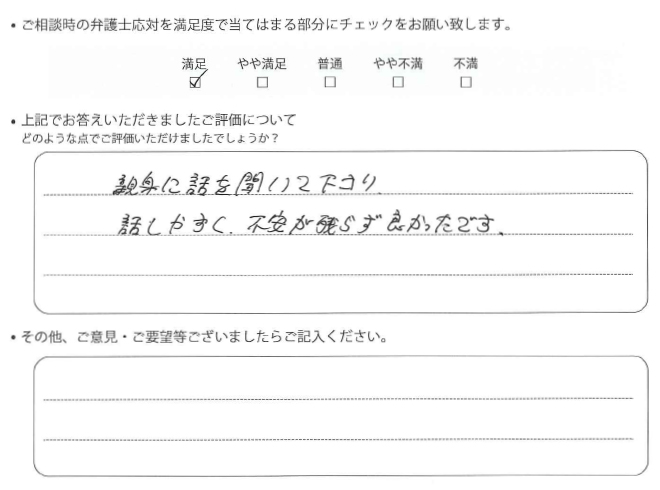 • ご相談時の弁護士応対を満足度で当てはまる部分にチェックをお願い致します。
満足 やや満足 普通 やや不満 不満
☑ ☐ ☐ ☐ ☐
• 上記でお答えいただきましたご評価について
どのような点でご評価いただけましたでしょうか?
親身に話を聞いて下さり、
話しやすく、不安が残らず良かったです。
• その他、ご意見・ご要望等ございましたらご記入ください。